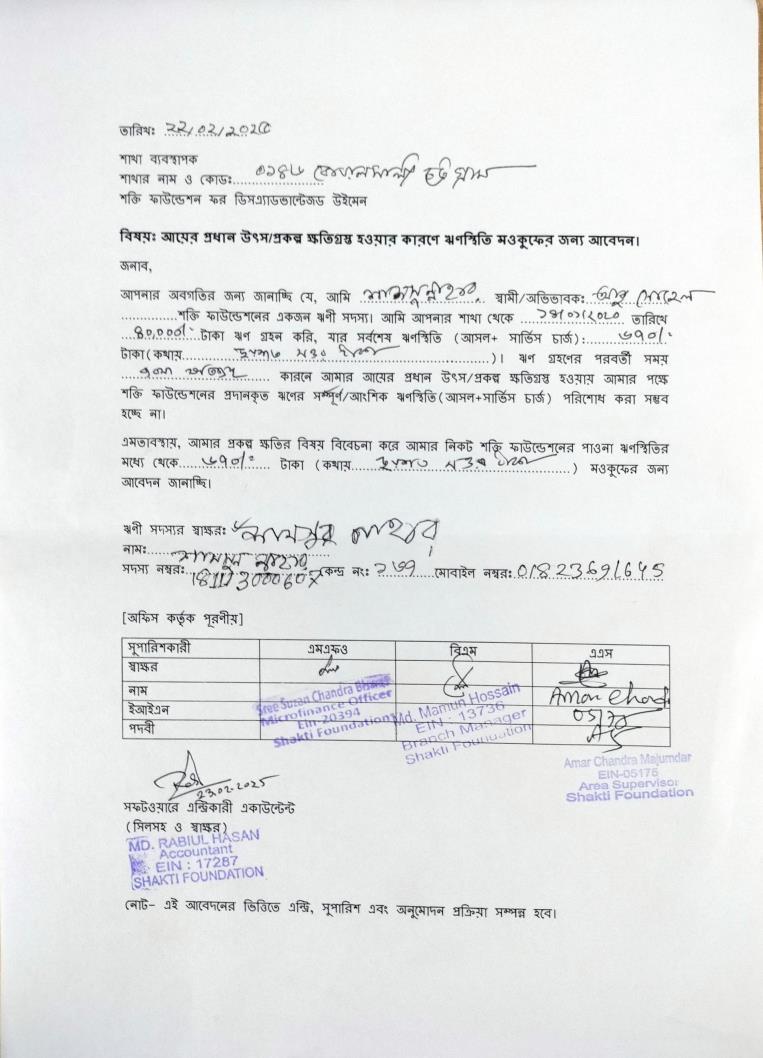 তারিখঃ ২২/০২/২০২৫
শাখা ব্যবস্থাপক
শাখার নাম ও কোডঃ ০১৪৬
শক্তি ফাউন্ডেশন ফর ডিসএ্যাডভান্টেজড উইমেন
বিষয়ঃ আয়ের প্রধান উৎস/প্রকল্প ক্ষতিগ্রস্ত হওয়ার কারণে ঋণস্থিতি মওকুফের জন্য আবেদন।
জনাব,
আপনার অবগতির জন্য জানাচ্ছি যে, আমি শামসুন্নাহার স্বামী/অভিভাবকঃ আবু
শক্তি ফাউন্ডেশনের একজন ঋণী সদস্য। আমি আপনার শাখা থেকে তারিখে
৪০,০০০/- টাকা ঋণ গ্রহন করি, যার সর্বশেষ ঋণস্থিতি (আসল+ সার্ভিস চার্জ)ঃ ৬৭০/-
টাকা(কথায় ছয়শত সত্তর টাকা)। ঋণ গ্রহণের পরবর্তী সময়
কারনে আমার আয়ের প্রধান উৎস/প্রকল্প ক্ষতিগ্রস্ত হওয়ায় আমার পক্ষে
শক্তি ফাউন্ডেশনের প্রদানকৃত ঋণের সম্পূর্ণ/আংশিক ঋণস্থিতি(আসল+সার্ভিস চার্জ) পরিশোধ করা সম্ভব
হচ্ছে না।
এমতাবস্থায়, আমার প্রকল্প ক্ষতির বিষয় বিবেচনা করে আমার নিকট শক্তি ফাউন্ডেশনের পাওনা ঋণস্থিতির
মধ্যে থেকে ৬৭০/- টাকা (কথায় ছয়শত সত্তর টাকা) মওকুফের জন্য
আবেদন জানাচ্ছি।
ঋণী সদস্যর স্বাক্ষরঃ শামসুর নাহার
নামঃ শামসুন নাহার
সদস্য নম্বরঃ কেন্দ্র নং: মোবাইল নম্বরঃ 01823691645
[অফিস কর্তৃক পূরণীয়]
সুপারিশকারী এমএফও বিএম এএস
স্বাক্ষর
নাম
ইআইএন
পদবী AS
Sree Suzan Chandra
Microfinance Officer
EIN-20394
Shakti Foundation
Md. Mamun Hossain
EIN - 13736
Branch Manager
Shakti Foundation
Amar Chandra Majumdar
EIN-05175
Area Supervisor
Shakti Foundation
23.02.2025
সফটওয়ারে এন্ট্রিকারী একাউন্টেন্ট
(সিলসহ ও স্বাক্ষর)
MD. RABIUL HASAN
Accountant
EIN : 17287
SHAKTI FOUNDATION
নোট- এই আবেদনের ভিত্তিতে এন্ট্রি, সুপারিশ এবং অনুমোদন প্রক্রিয়া সম্পন্ন হবে।